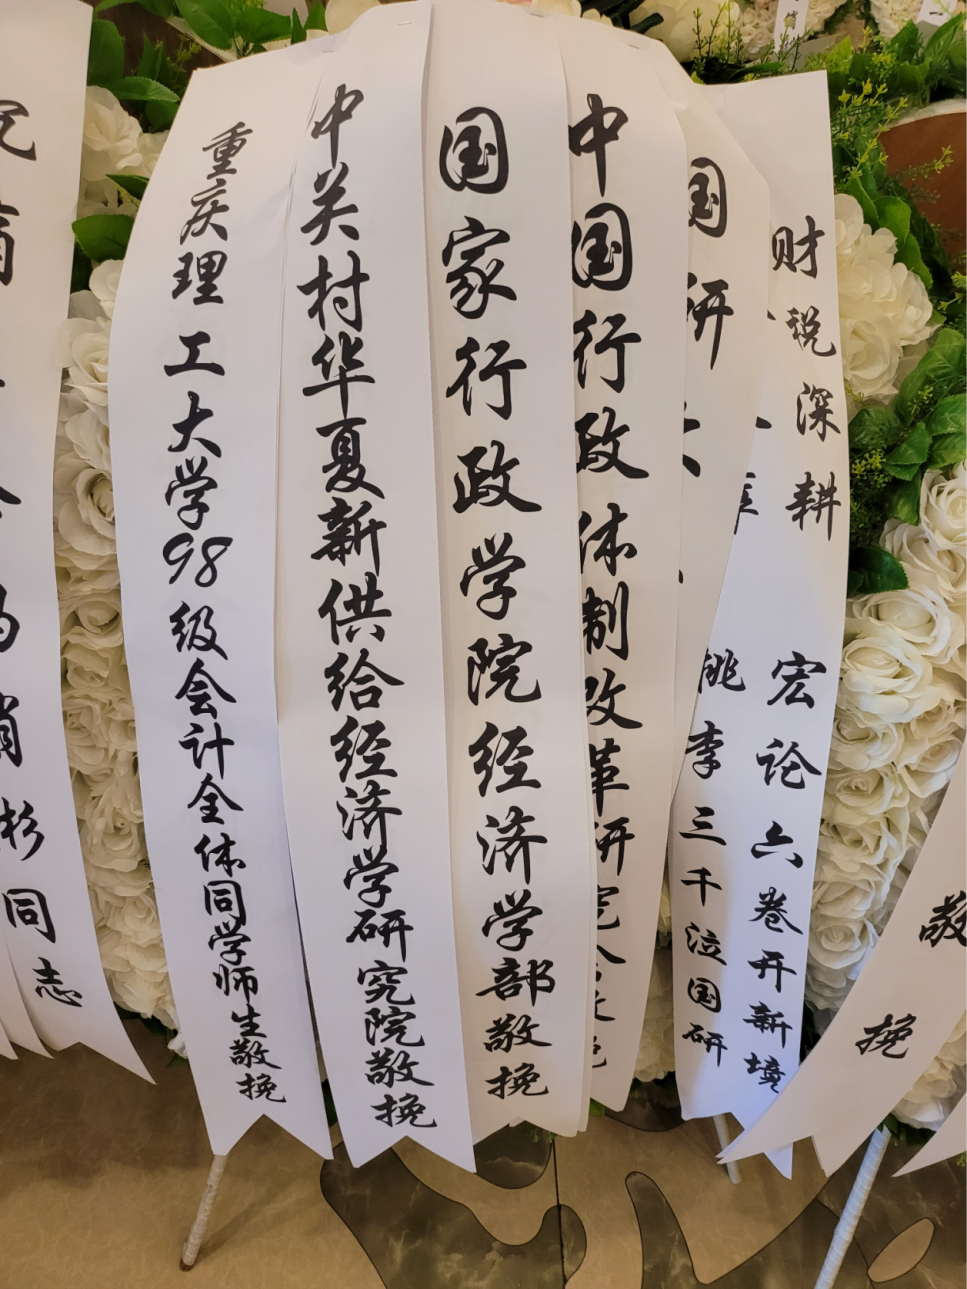 同志
重庆理工大学98级会计全体同学师生敬挽
中关村华夏新供给经济学研究院敬挽
国家行政学院经济学部敬挽
中国行政体制改革研究会
国研
财税深耕 宏论六卷开新境
桃李三千泣国研
敬挽